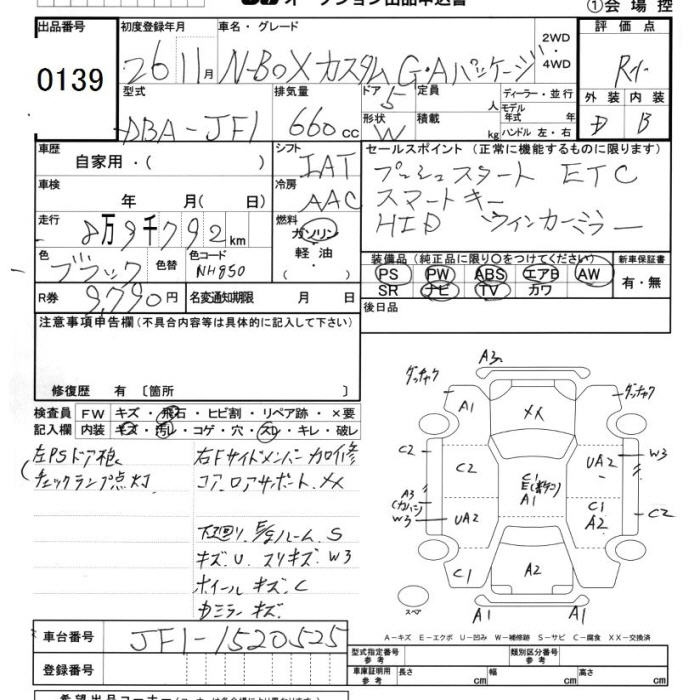 オークション出品申込書
①会場控
出品番号
0139
初度登録年月
26 11月
車名・グレード
N-BOXカスタム G・Aパッケージ
2WD
・
4WD
評価点
R1
外装 内装
D B
型式
DBA-JF1
排気量
660 cc
ドア
5
形状
W
定員
人
積載
kg
ディーラー・並行
モデル
年式 年
ハンドル 左・右
車歴
自家用・( )
シフト
IAT
冷房
AAC
セールスポイント(正常に機能するものに限ります)
プッシュスタート ETC
スマートキー
HID ウインカーミラー
車検
年 月( 日)
走行
8万9千792km
燃料
ガソリン
軽油
( ・ )
色
ブラック
色替
色コード
NH850
装備品(純正品に限り○をつけてください)
PS PW ABS エアB AW
SR ナビ TV カワ
新車保証書
有・無
R券
9,790円
名変通知期限 月 日
後日品
注意事項申告欄(不具合内容等は具体的に記入して下さい)
修復歴 有〔箇所 〕
検査員
記入欄
FW キズ・飛石・ヒビ割・リペア跡・×要
内装 キズ・汚レ・コゲ・穴・スレ・キレ・破レ
左PSドア
チェックランプ点灯
右Fサイドメンバー 修
コア、ロアサポート、XX
下廻り、 ルーム、S
キズ、U、スリキズ、W3
ホイールキズ、C
ミラーキズ
A3
ダッチャク
A1
XX
ダッチャク
C2
C2
UA2
W3
A3
W3
UA2
C1
E
A1
C1
A2
C2
C1
A2
A1
A1
スペア
A-キズ E-エクボ U-凹み W-補修跡 S-サビ C-腐食 XX-交換済
車台番号
JF1-1520525
登録番号
型式指定番号
参考
類別区分番号
参考
車庫証明用
参考
長さ cm
幅 cm
高さ cm
希望出品コーナー